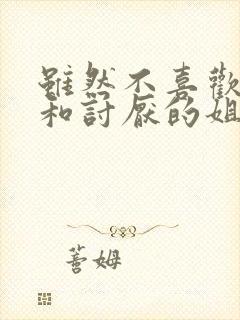 雖然不喜歡
和討厭的姐
薔姆